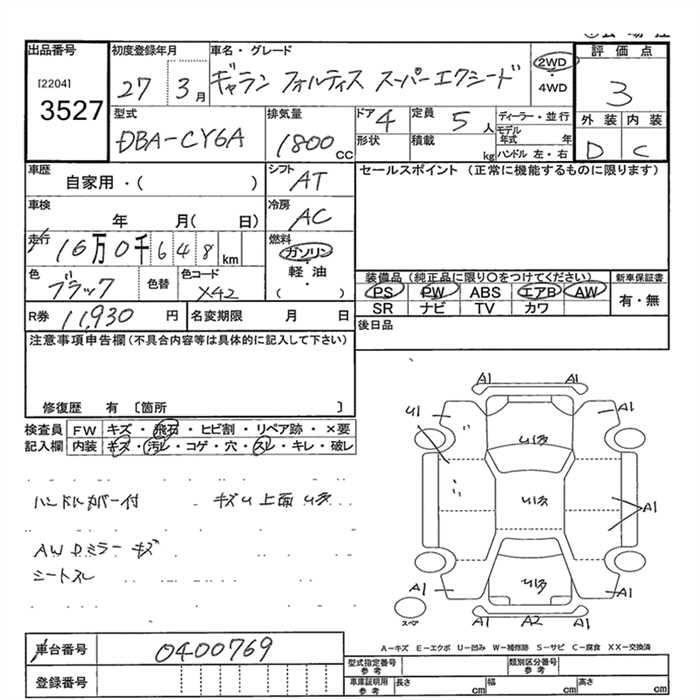 出品番号 初度登録年月 車名・グレード 評価点
[2204] 27 3月 ギャラン フォルティス スーパーエクシード 2WD・4WD 3
3527
型式 排気量 ドア 4 定員 5人 ディーラー・並行 外装 内装
DBA-CY6A 1800cc 形状 積載 kg モデル年式 年 D C
ハンドル 左・右
車歴 シフト セールスポイント (正常に機能するものに限ります)
自家用・( ) AT
車検 冷房
年 月( 日) AC
走行 燃料
16万0千648km ガソリン・軽油・( )
色 色替 色コード 装備品 (純正品に限り○をつけてください) 新車保証書
ブラック X42 PS PW ABS エアB AW 有・無
SR ナビ TV カワ
R券 11,930円 名変期限 月 日 後日品
注意事項申告欄(不具合内容等は具体的に記入して下さい)
修復歴 有 〔箇所 〕
検査員 FW キズ・飛石・ヒビ割・リペア跡・×要
記入欄 内装 キズ・汚レ・コゲ・穴・スレ・キレ・破レ
ハンドルカバー付 キズU上面U多
AWDミラーキズ
シートスレ
A1 A1
U1 A1
U多
U多
A1
U多
A1 A1
スペア
A1 A2 A1
A-キズ E-エクボ U-凹み W-補修跡 S-サビ C-腐食 XX-交換済
車台番号 0400769
登録番号
型式指定番号 参考 類別区分番号 参考
車庫証明用 参考 長さ cm 幅 cm 高さ cm